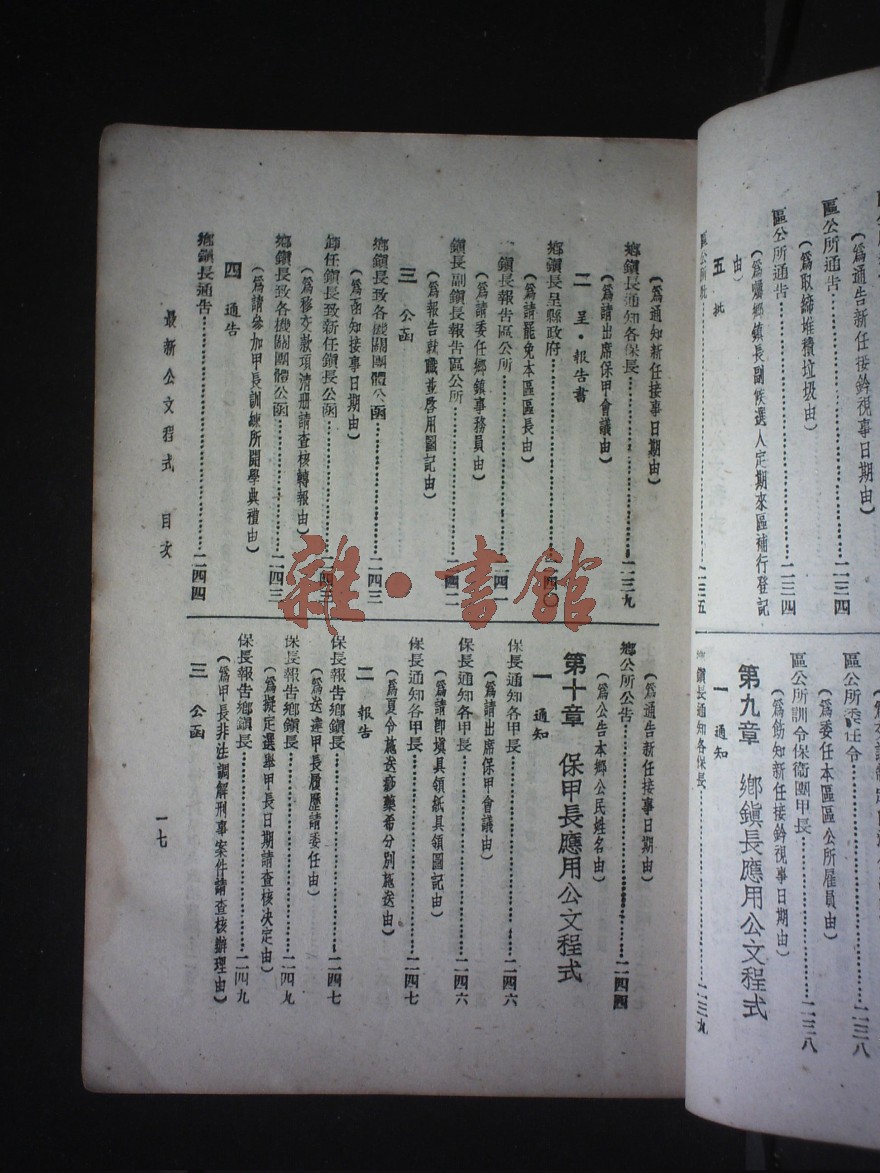 區公所通告……二三四
（爲通告新任接鈐視事日期由）
區公所通告……二三四
（爲取締堆積垃圾由）
區公所通告……二三四
（爲囑鄉鎮長副候選人定期來區補行登記
由）
五　批
區公所批……二三五
區公所委任令……二三八
（爲委任本區區公所雇員由）
區公所訓令保衛團甲長……二三八
（爲飭知新任接鈐視事日期由）
第九章　鄉鎮長應用公文程式
一　通知
鄉鎮長通知各保長……二三九
（爲通知新任接事日期由）
鄉鎮長通知各保長……二三九
（爲請出席保甲會議由）
二　呈・報告書
鄉鎮長呈縣政府……二四〇
（爲請罷免本區區長由）
鎮長報告區公所……二四一
（爲請委任鄉鎮事務員由）
鎮長副鎮長報告區公所……二四二
（爲報告就職並啓用圖記由）
三　公函
鄉鎮長致各機關團體公函……二四三
（爲函知接事日期由）
卸任鎮長致新任鎮長公函……二四三
（爲移交款項清册請查核轉報由）
鄉鎮長致各機關團體公函……二四三
（爲請參加甲長訓練所開學典禮由）
四　通告
鄉鎮長通告……二四四
（爲通告新任接事日期由）
鄉公所公告……二四四
（爲公告本鄉公民姓名由）
第十章　保甲長應用公文程式
一　通知
保長通知各甲長……二四六
（爲請出席保甲會議由）
保長通知各甲長……二四六
（爲請卽塡具領紙具領圖記由）
保長通知各甲長……二四七
（爲夏令施送痧藥希分別施送由）
二　報告
保長報告鄉鎮長……二四七
（爲送達甲長履歷請委任由）
保長報告鄉鎮長……二四九
（爲擬定選舉甲長日期請查核決定由）
保長報告鄉鎮長……二四九
（爲甲長非法調解刑事案件請查核辦理由）
三　公函
最新公文程式　目次
一七
雜・書館